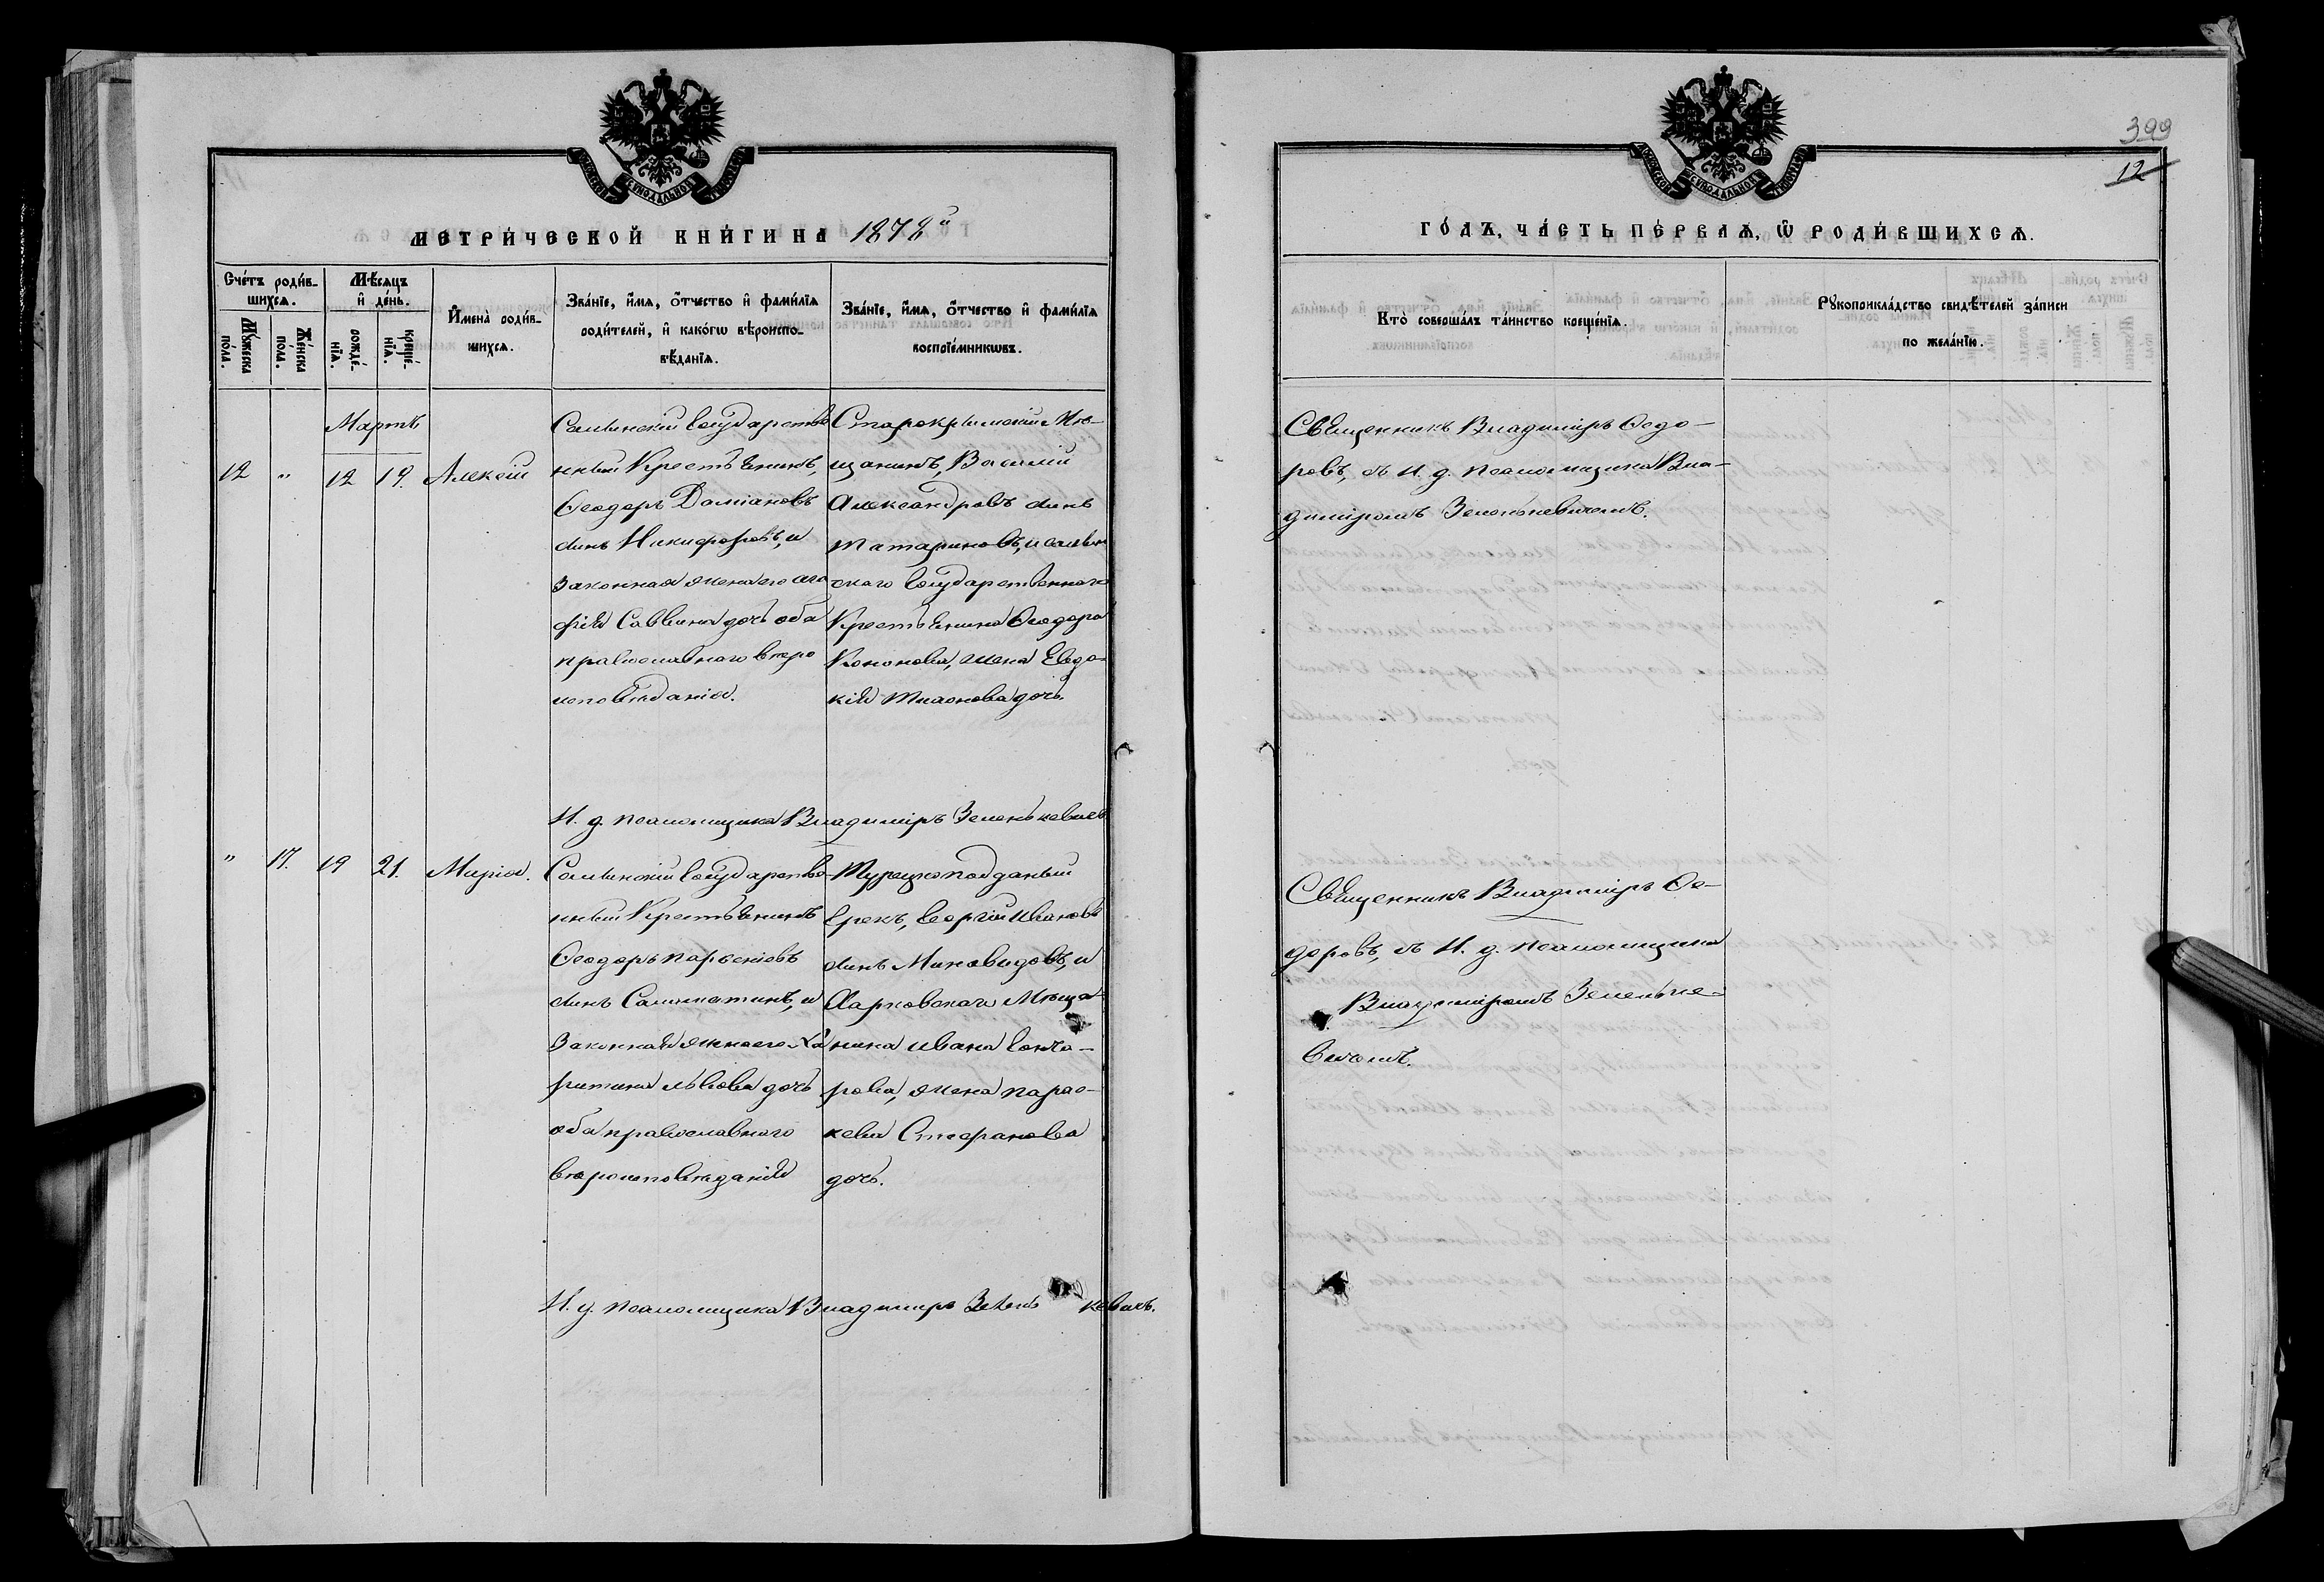 399
12
МЕТРИ́ЧЕСКОЙ КНИ́ГИ НА 1878й
ГО́ДЪ, ЧА́СТЬ ПЕ́РВАѦ, Ѿ РОДИ́ВШИХСѦ.
Сче́тъ роди́в-
шихсѧ.
Мꙋ́жеска
по́ла.
Же́нска
по́ла.
Мѣ́сѧцъ
и҆ де́нь.
рожде́-
нїѧ.
креще́-
нїѧ.
И҆мена̀ роди́в-
шихсѧ.
Зва́нїе, и҆́мѧ, ѻ҆́тчество и҆ фами́лїѧ
роди́телей, и҆ како́гѡ вѣроиспо-
вѣ́данїѧ.
Зва́нїе, и҆́мѧ, ѻ҆́тчество и҆ фами́лїѧ
воспрїе́мникѡвъ.
Кто̀ соверша́лъ та́инство креще́нїѧ.
Рꙋкоприкла́дство свидѣ́телей за́писи
по жела́нїю.
Мартъ
12 " 12 19. Алексій
Государстве
нный Крестьянинъ,
Ѳеодоръ Даміановъ
сынъ Никифоровъ, и
Законная жена его Ага
фія Саввина дочь оба
православного веро
исповѣданія.
Старокрымскій Мѣ-
щанинъ, Василій
Александровъ сынъ
Татариновъ, и
скаго Государственнаго
Крестьянина Ѳеодора
Кононова, жена Евдо-
кія дочь.
Священникъ Владиміръ Ѳедо-
ровъ, съ И. д. псаломщика Вла-
диміромъ Зеленькевичемъ.
И. д. псаломщика Владиміръ Зеленькевичъ
" 17. 19 21. Марія.
Государстве
нный Крестьянинъ
Ѳеодоръ Парѳеніевъ
сынъ Саломатинъ, и
Законная жена его Ха
ритина Львова дочь
оба православного
вероисповѣданія
Турецкоподданый
Грекъ, Георгій Ивановъ
сынъ Миновидовъ, и
Харковскаго Мѣща
нина Ивана
рова, жена Парас-
кева Стефанова
дочь.
Священникъ Владиміръ Ѳе-
доровъ, съ И. д. псаломщика
Владиміромъ Зеленьке-
вичемъ.
И. д. псаломщика Владиміръ Зеленькевичъ.